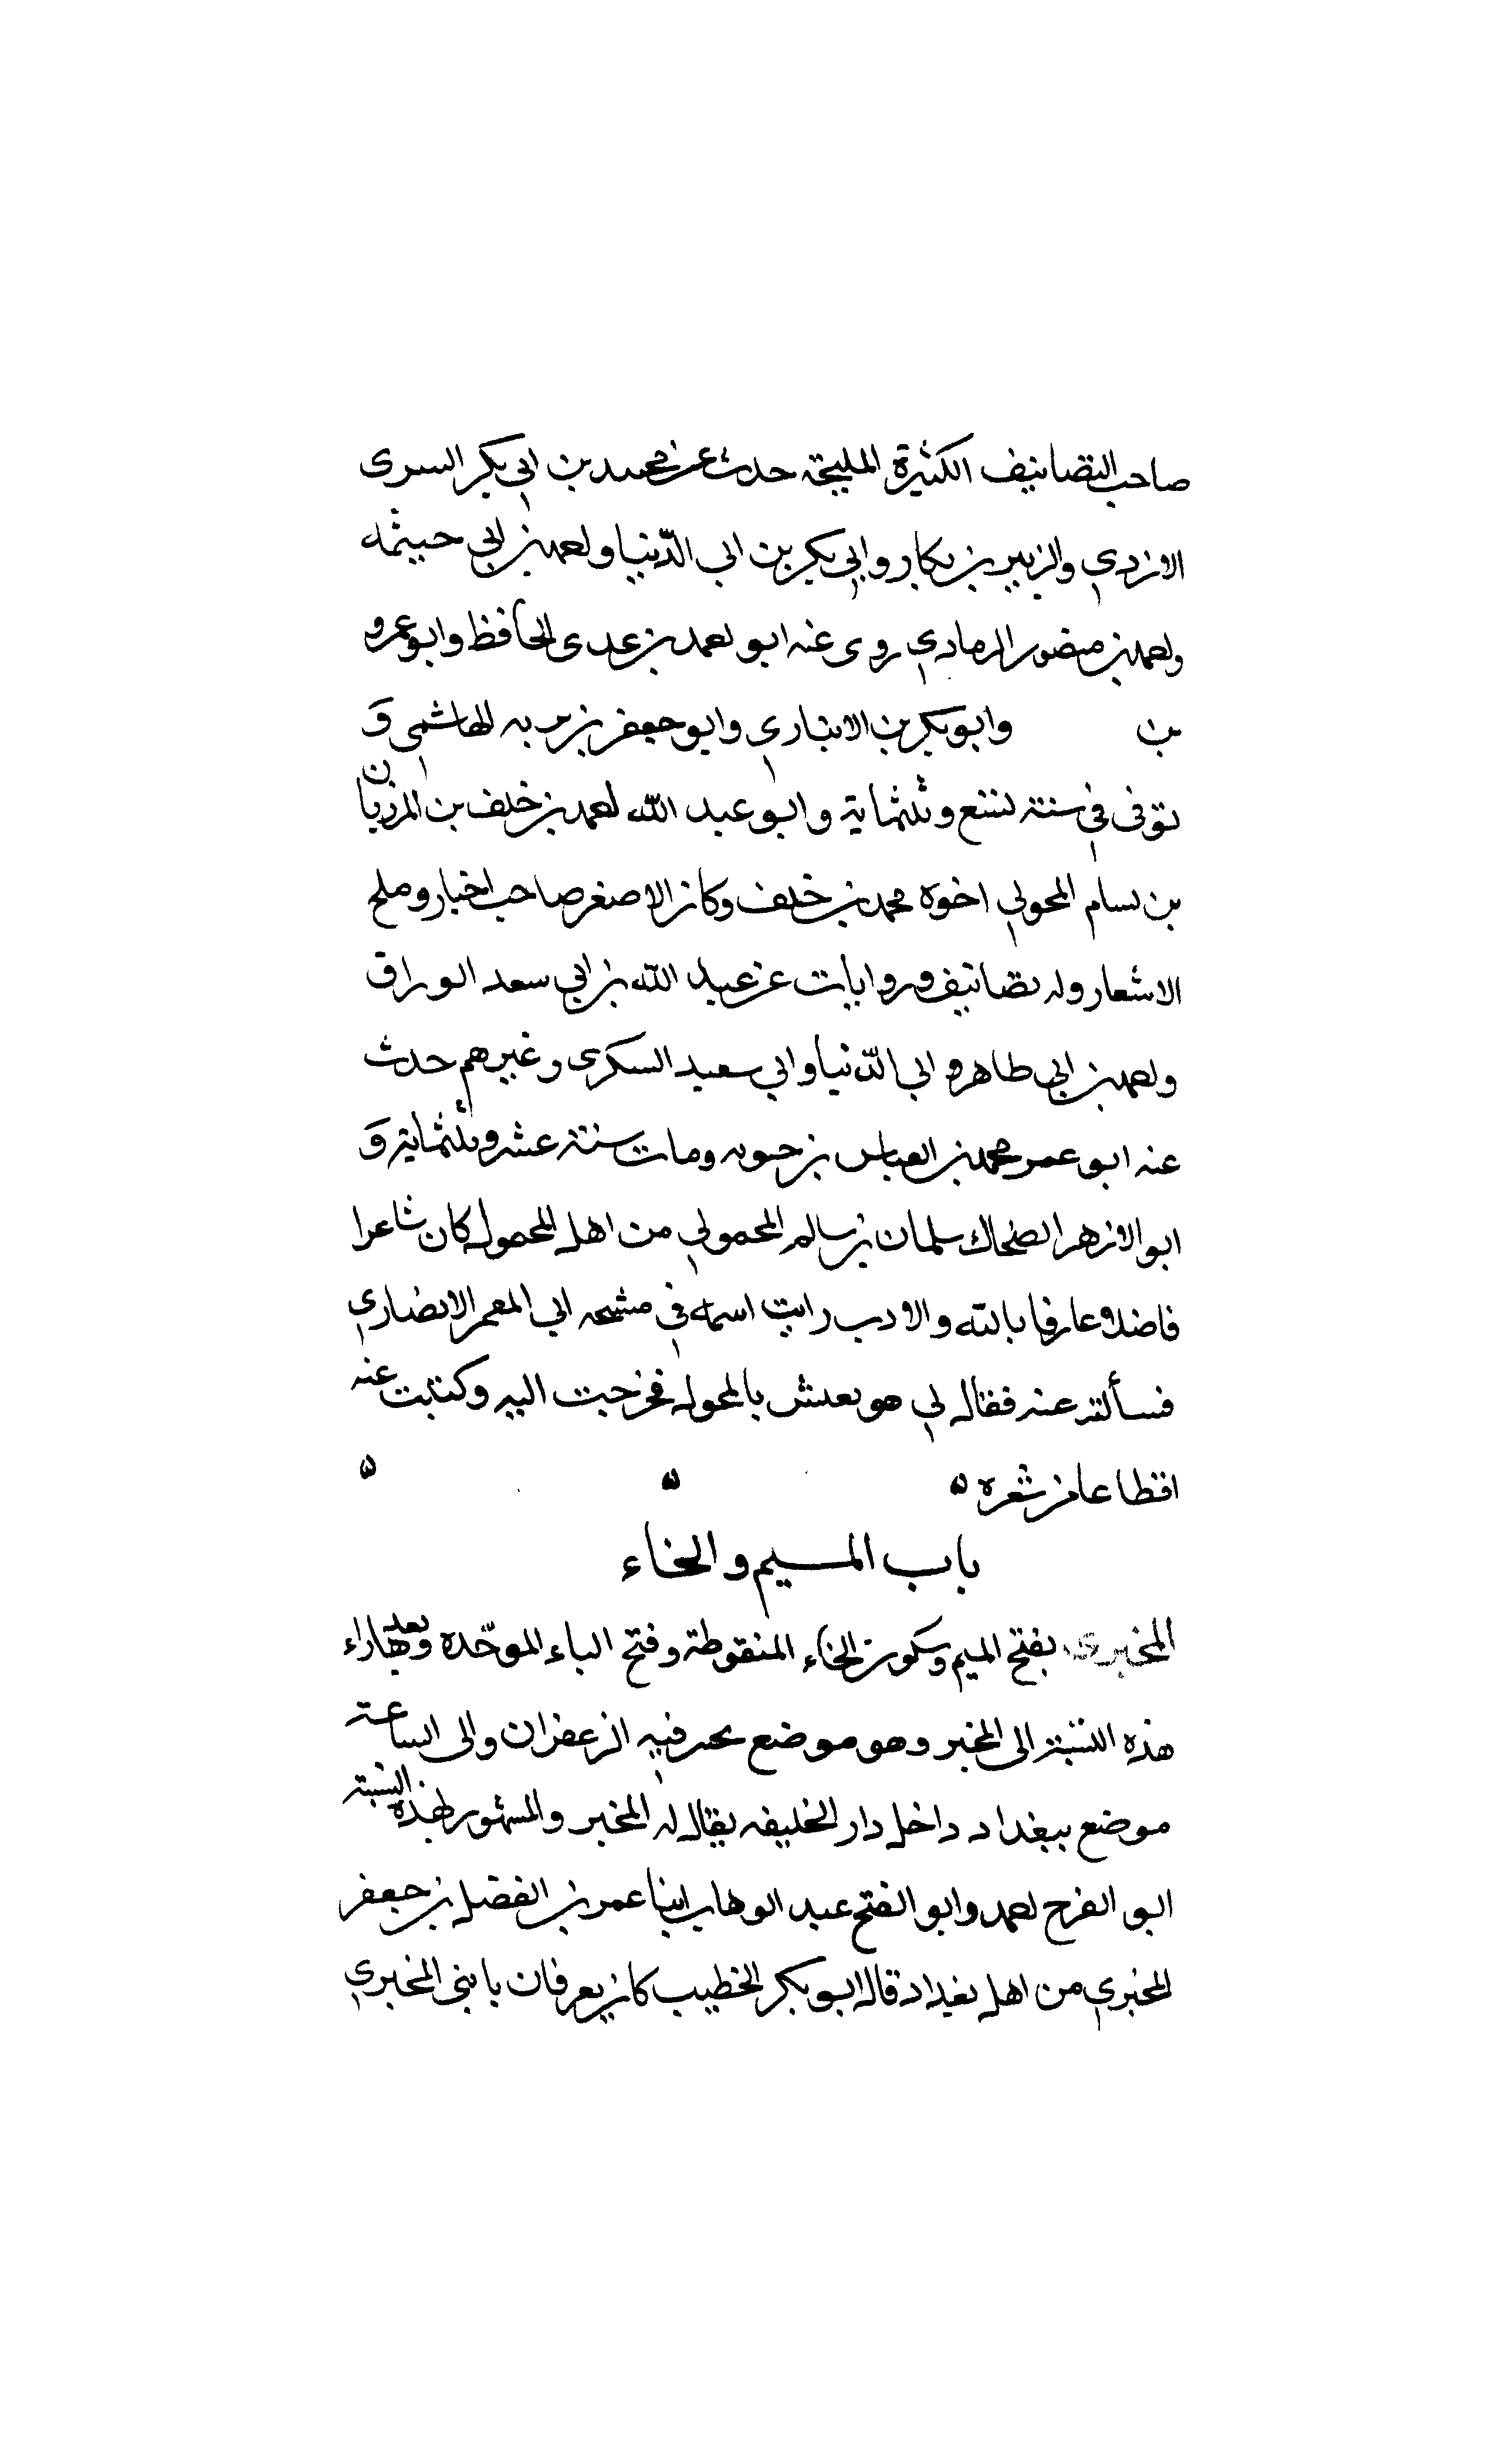 صاحب التصانيف الكثيرة المليحة حدث عن محمد بن ابي بكر السرى
الازدي والزبير بن بكار وابي بكر بن ابي الدّنيا واحمد بن ابي خيثمه
واحمد بن منصور الرمادي روى عنه ابو احمد بن عدى الحافظ وابو عمرو
بن وابو بكر بن الانباري وابو جعفر بن بريه الهاشمي وَ
توفى في سنة تسع وثلثماية وابو عبد الله احمد بن خلف بن المرزبان
بن بسام المحولي اخوه محمد بن خلف وكان الاصغر صاحب اخبار وملح
الاشعار وله تصانيف وروايات عن عبد الله بن ابي سعد الوراق
واحمد بن ابي طاهر و ابي الدّنيا وابي سعيد السكرى وغيرهم حدث
عنه ابو عمر محمد بن العباس بن حيويه ومات سنة عشر وثلثماية وَ
ابو الازهر الضحاك سلمان بن سالم المحمولي من اهل المحول كان شاعرا
فاضلا عارفا بالله والادب رايت اسمه في مشيخه ابي المعمر الانصاري
فسألته عنه فقال لي هو يعيش بالمحول فخرجت اليه وكتبت عنه
اقطاعا من شعره ه ه ه
باب الميم والخاء
المخبرى بفتح الميم وسكون الخاء المنقوطة وفتح الباء الموحّده وبعدها راء
هذه النسبة الى المخبر وهو موضع فيه الزعفران والى الساعة
موضع ببغداد داخل دار الخليفه يقال له المخبر والمشهور بهذه النسبة
ابو الفرح احمد وابو الفتح عبد الوهاب ابنا عمر بن الفضل بن جعفر
المخبري من اهل بغداد قال ابو بكر الخطيب كان يعرفان بابنى المخبري